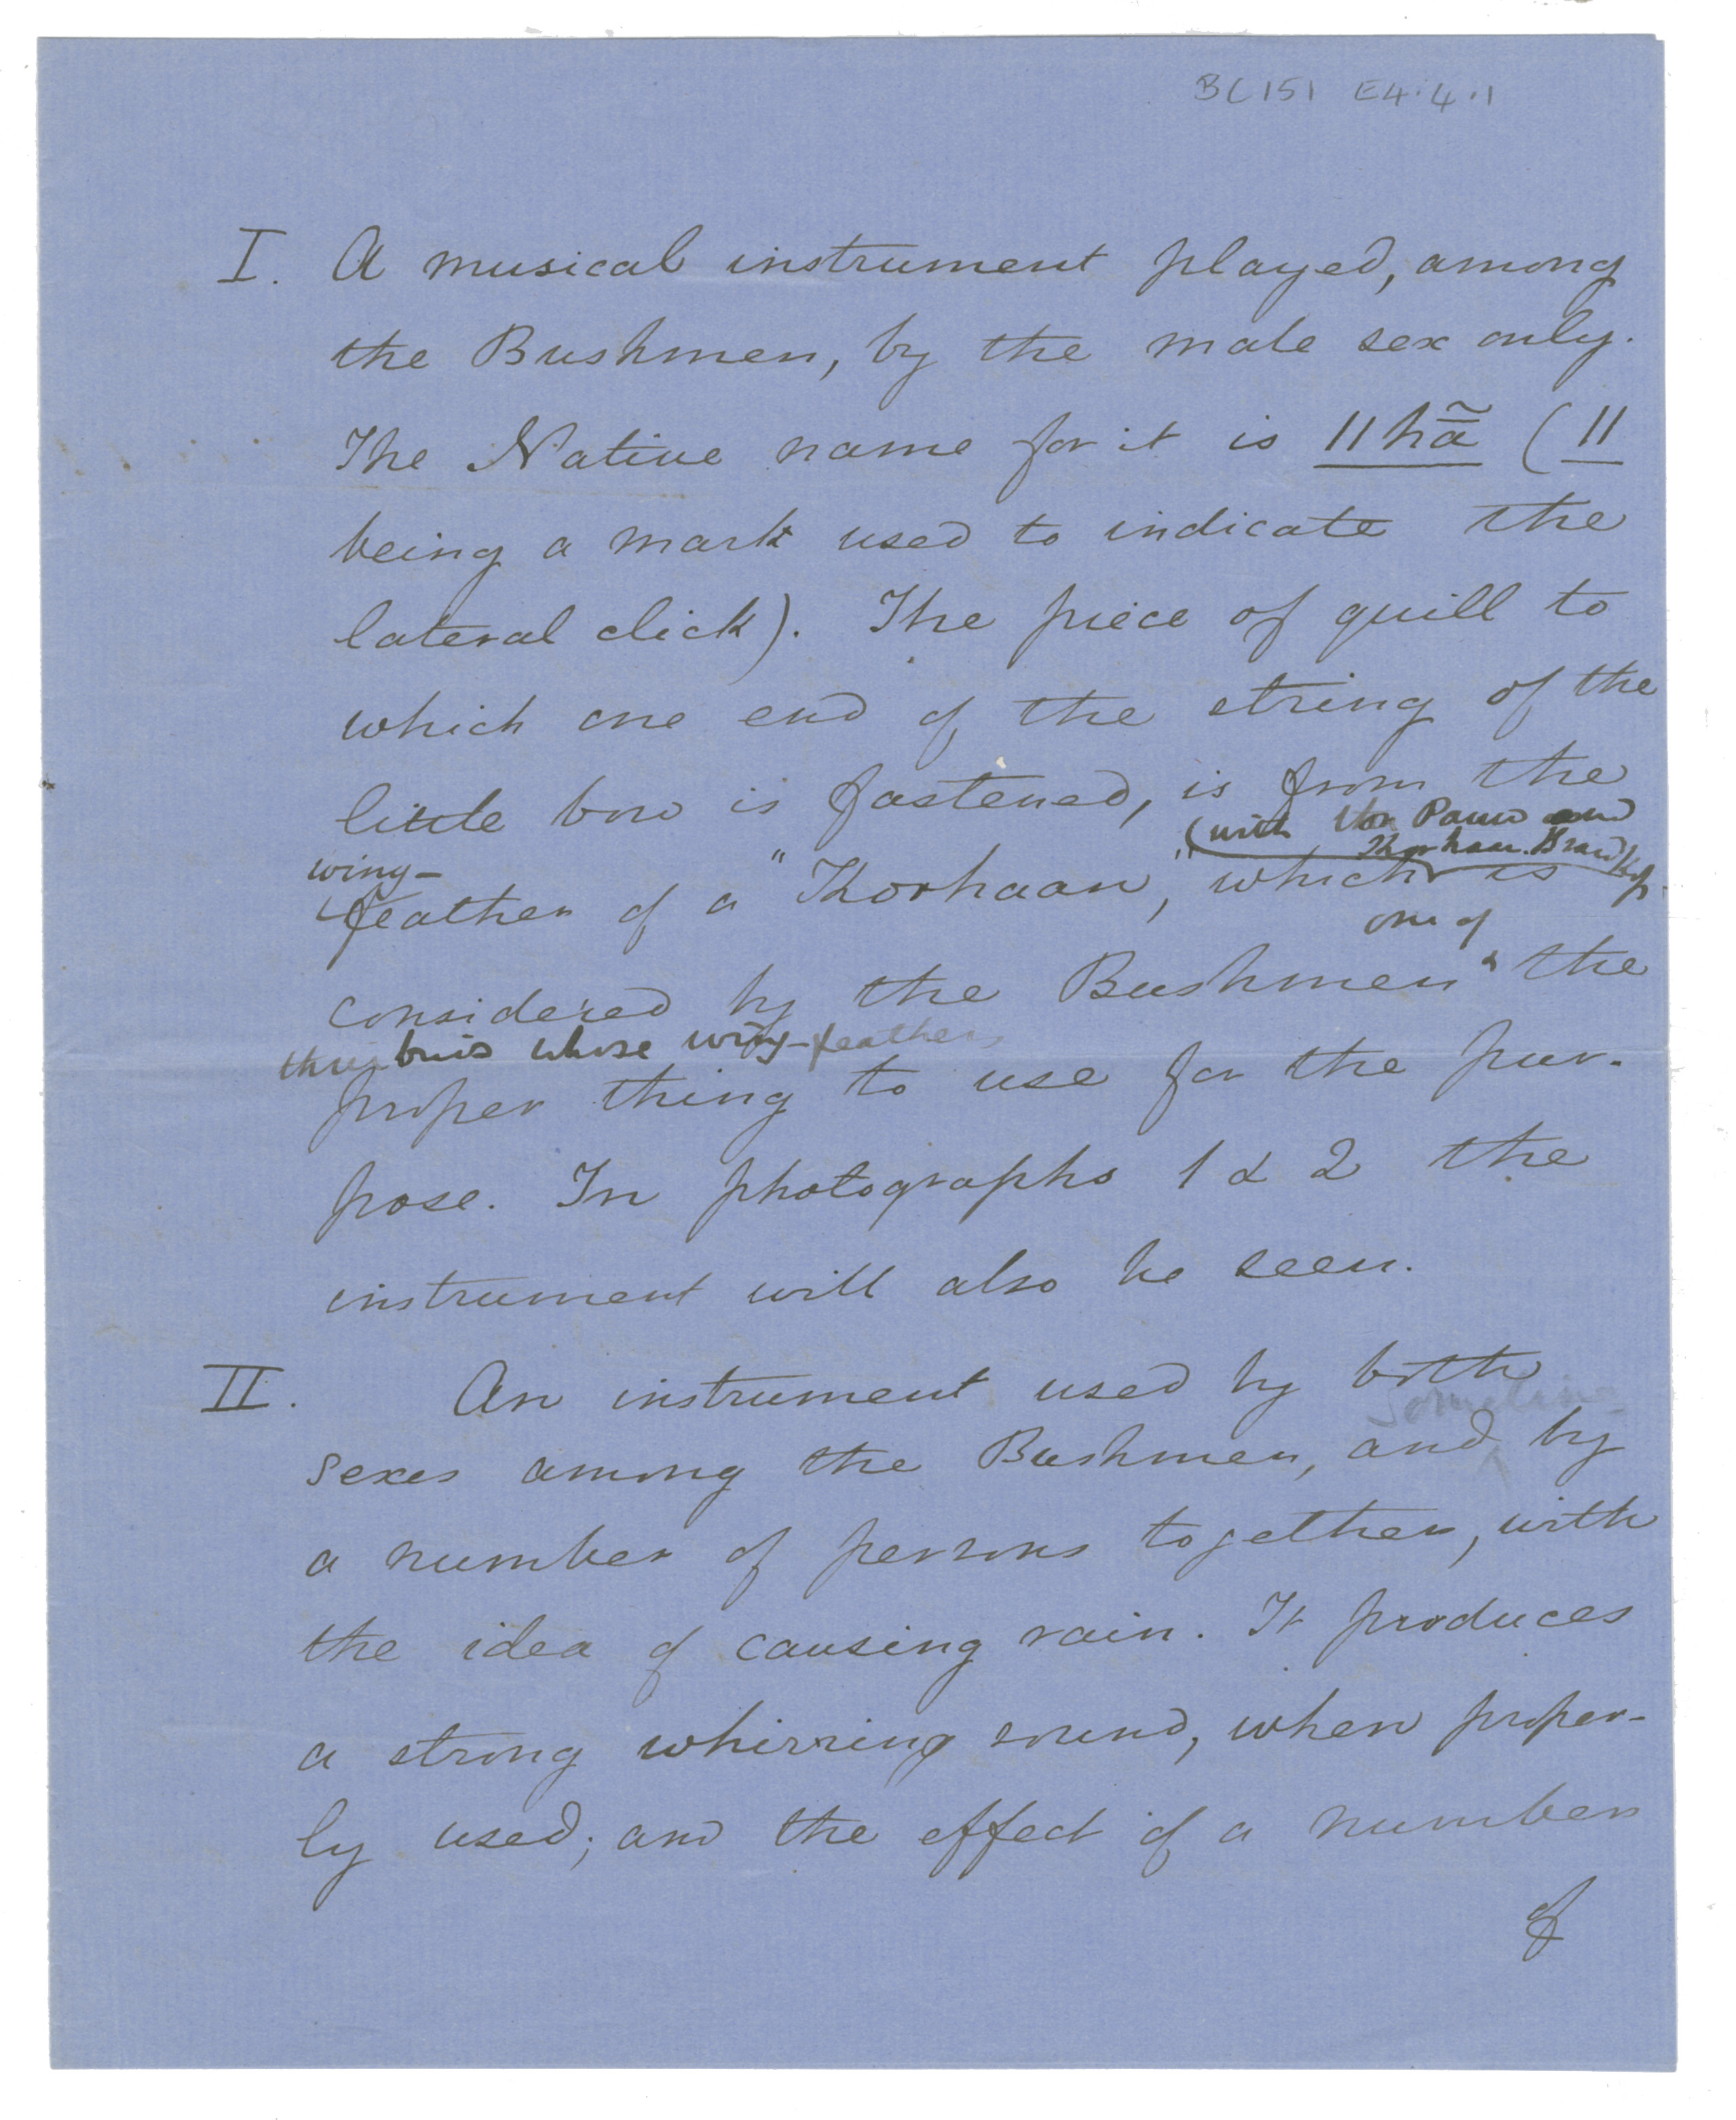 BC151 E4.4.1
I. A musical instrument played, among
the Bushmen, by the male sex only.
The Native name for it is ||hã (||
being a mark used to indicate the
lateral click). The piece of quill to
which one end of the string of the
little bow is fastened, is from the
(with Vor Pauw and
Knorhaan Brand kop
wing-
feather of a "Korhaan", which is
one of
considered by the Bushmen the
three birds whose wing-feathers
proper thing to use for the pur-
pose. In photographs 1 & 2 the
instrument will also be seen.
II. An instrument used by both
sometimes
sexes among the Bushmen, and by
a number of persons together, with
the idea of causing rain. It produces
a strong whirring sound, when proper-
ly used; and the effect of a number
of